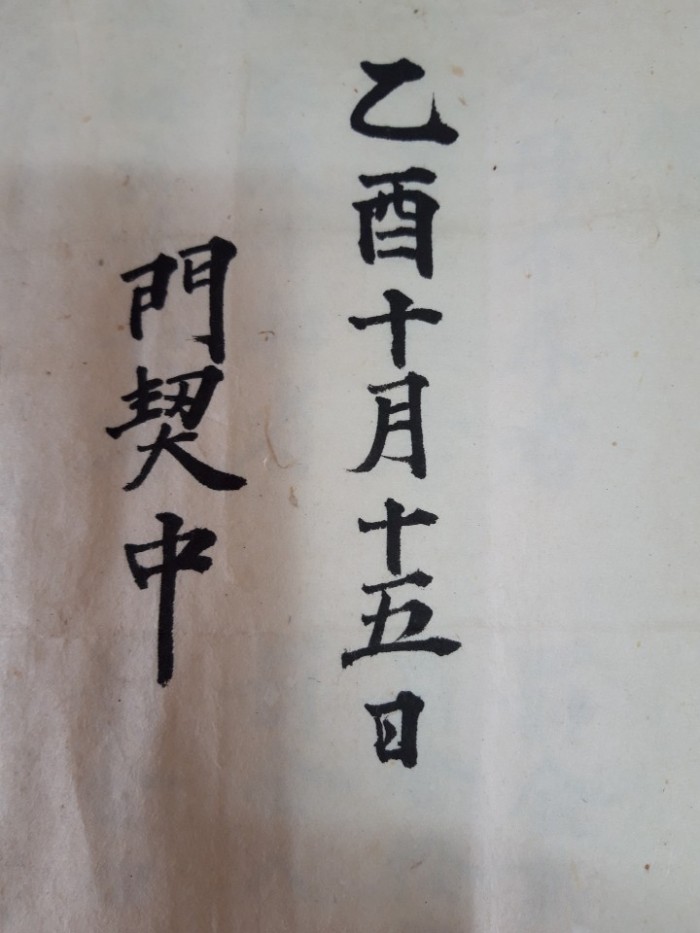 乙酉十月十五日
門契中